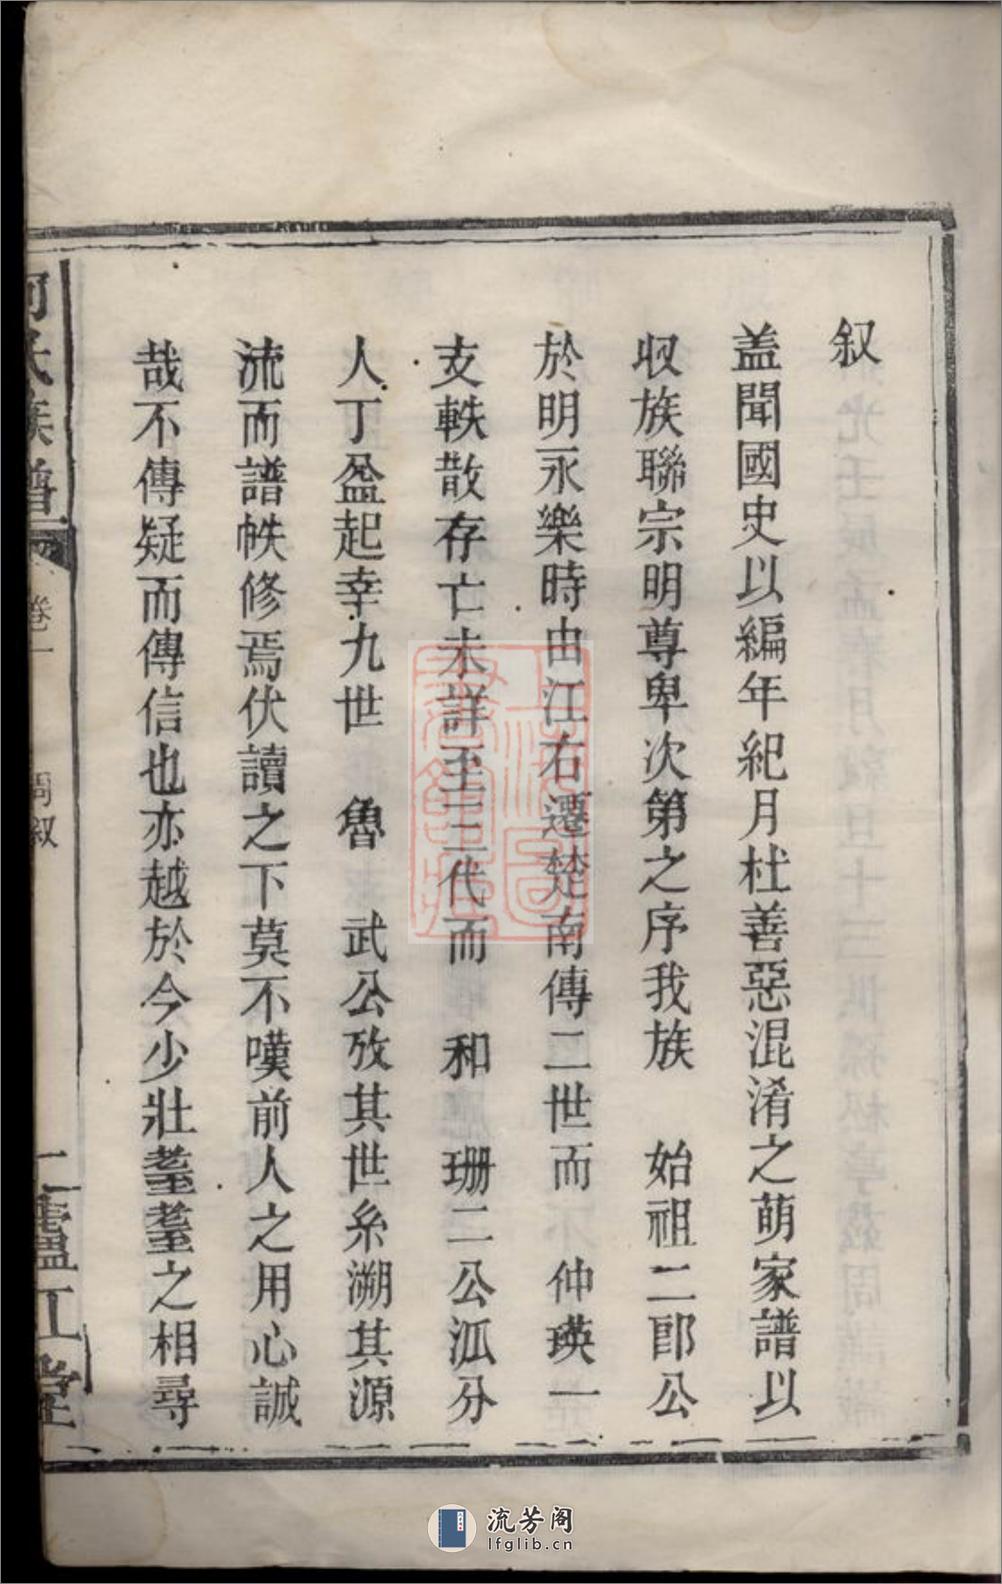 叙
盖聞國史以編年紀月杜善惡混淆之萌家譜以
収族聯宗明尊卑次第之序我族 始祖二郎公
於明永樂時由江右遷楚南傳二世而 仲瑛一
支軼散存亡未詳至三代而 和 珊二公派分
人丁盈起幸九世 魯 武公攷其世系溯其源
流而譜帙修焉伏讀之下莫不嘆前人之用心誠
哉不傳疑而傳信也亦越於今少壯耋耋之相尋
何氏族譜 卷一 周叙 廬江堂
流芳阁
lfglib.cn